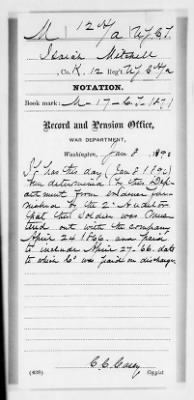 M 12 H/a U.S.C.T.
Isaiah Mitchell
, Co. K, 12 Reg't U.S.C.H/a
NOTATION.
Book mark: M-17-C.T.1871
Record and Pension Office,
WAR DEPARTMENT,
Washington, Jan 8, 1890
It has this day (Jan 8 1890)
been determined by this Dep-
artment from evidence fur-
nished by the 2' Auditor
that the soldier was Mus-
tered out with the company
April 24 1866. and paid
to include April 27-66. date
to which Co. was paid on discharge
C.C. Casey
(438) Copyist